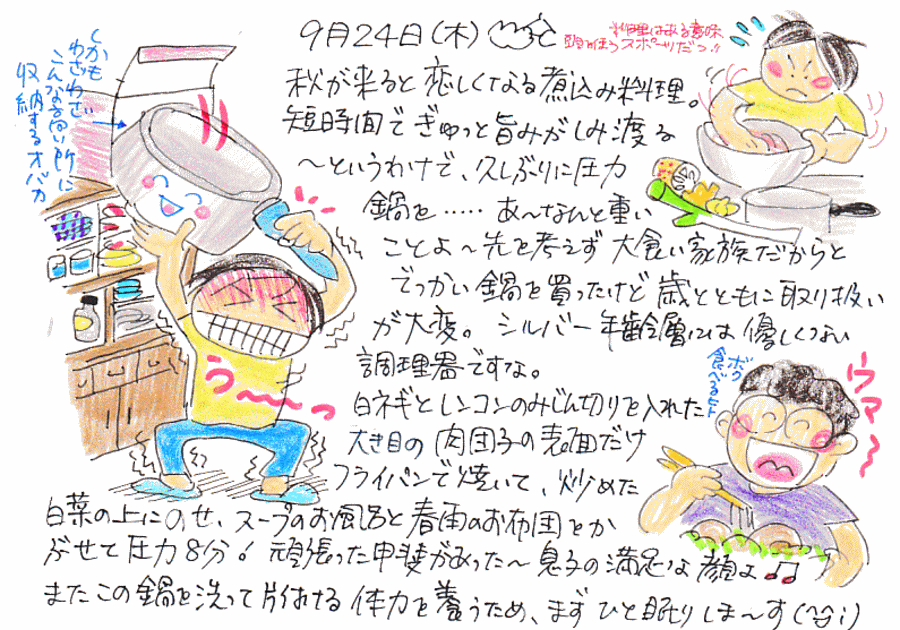 9月24日(木)
料理はある意味
頭を使うスポーツだっ!!
秋が来ると恋しくなる煮込み料理。
短時間でぎゅっと旨みがしみ渡る
〜というわけで、久しぶりに圧力
鍋を……あ〜なんと重い
ことよ〜先を考えず大食い家族だからと
でっかい鍋を買ったけど歳とともに取り扱い
が大変。シルバー年齢層には優しくない
調理器ですな。
白ネギとレンコンのみじん切りを入れた
大き目の肉団子の表面だけ
フライパンで焼いて、炒めた
白菜の上にのせ、スープのお風呂と春雨のお布団をか
ぶせて圧力8分!頑張った甲斐があった〜息子の満足な顔よ♫
またこの鍋を洗って片付ける体力を養うため、まずひと眠りしま〜す(^^;)
しかも
わざわざ
こんな高い所に
収納するオバカ
う〜〜っ
ボク
食べるヒト
ウマ〜